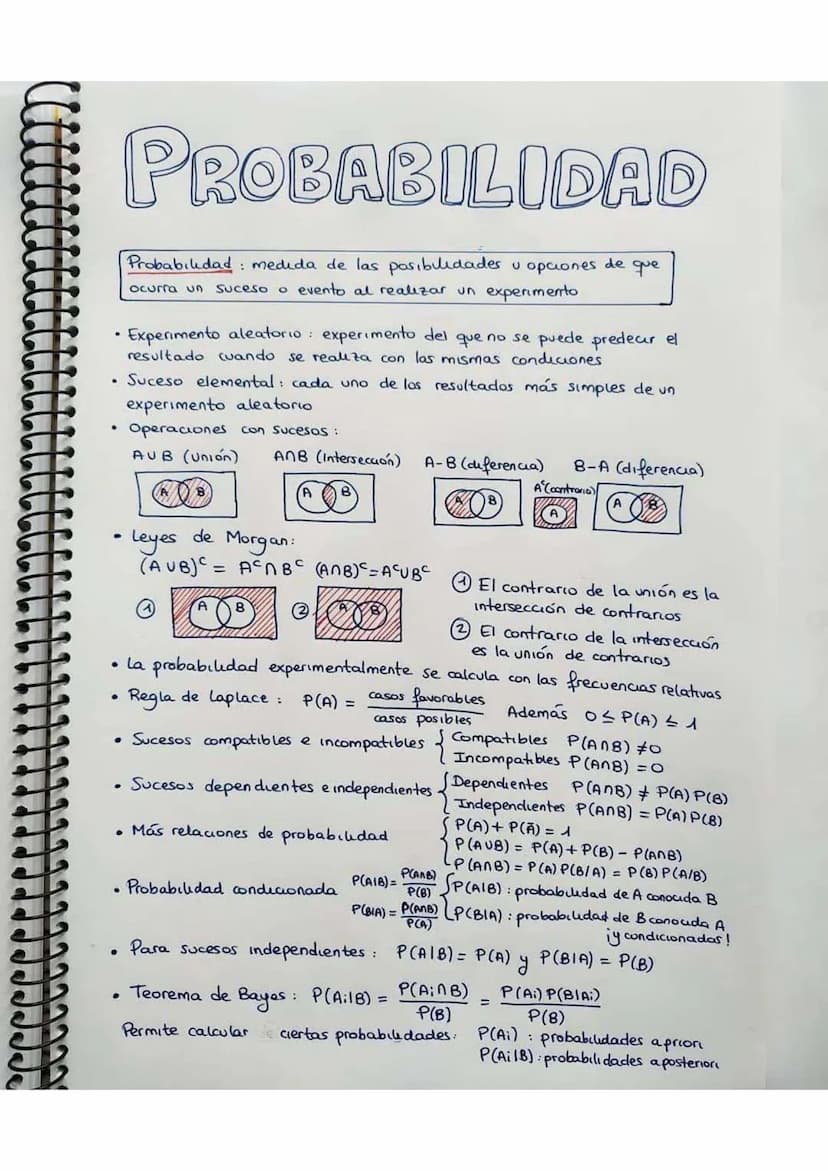 PROBABILIDAD
Probabilidad : medida de las posibilidades u opciones de que
ocurra un suceso o evento al realizar un experimento
• Experimento aleatorio : experimento del que no se puede predecir el
resultado cuando se realiza con las mismas condiciones
• Suceso elemental : cada uno de los resultados más simples de un
experimento aleatorio
• Operaciones con sucesos :
A∪B (Unión) A∩B (Intersección) A-B (diferencia) B-A (diferencia)
Aᶜ (contrario)
A B A B A B A A B
• Leyes de Morgan:
(A∪B)ᶜ = Aᶜ∩Bᶜ (A∩B)ᶜ=Aᶜ∪Bᶜ
① A B ② A B
① El contrario de la unión es la
intersección de contrarios
② El contrario de la intersección
es la unión de contrarios
• La probabilidad experimentalmente se calcula con las frecuencias relativas
• Regla de Laplace : P(A) = casos favorables / casos posibles Además 0 ≤ P(A) ≤ 1
• Sucesos compatibles e incompatibles { Compatibles P(A∩B) ≠0
Incompatibles P(A∩B) =0
• Sucesos dependientes e independientes { Dependientes P(A∩B) ≠ P(A) P(B)
Independientes P(A∩B) = P(A) P(B)
• Más relaciones de probabilidad { P(A) + P(Ā) = 1
P(A∪B) = P(A) + P(B) - P(A∩B)
P(A∩B) = P(A) P(B/A) = P(B) P(A/B)
• Probabilidad condicionada P(A|B) = P(A∩B) / P(B) { P(A|B) : probabilidad de A conocida B
P(B|A) = P(A∩B) / P(A) P(B|A) : probabilidad de B conocida A
¡y condicionadas!
• Para sucesos independientes : P(A|B) = P(A) y P(B|A) = P(B)
• Teorema de Bayes : P(Ai|B) = P(Ai∩B) / P(B) = P(Ai) P(B|Ai) / P(B)
Permite calcular ciertas probabilidades: P(Ai) : probabilidades a priori
P(Ai|B) : probabilidades a posteriori